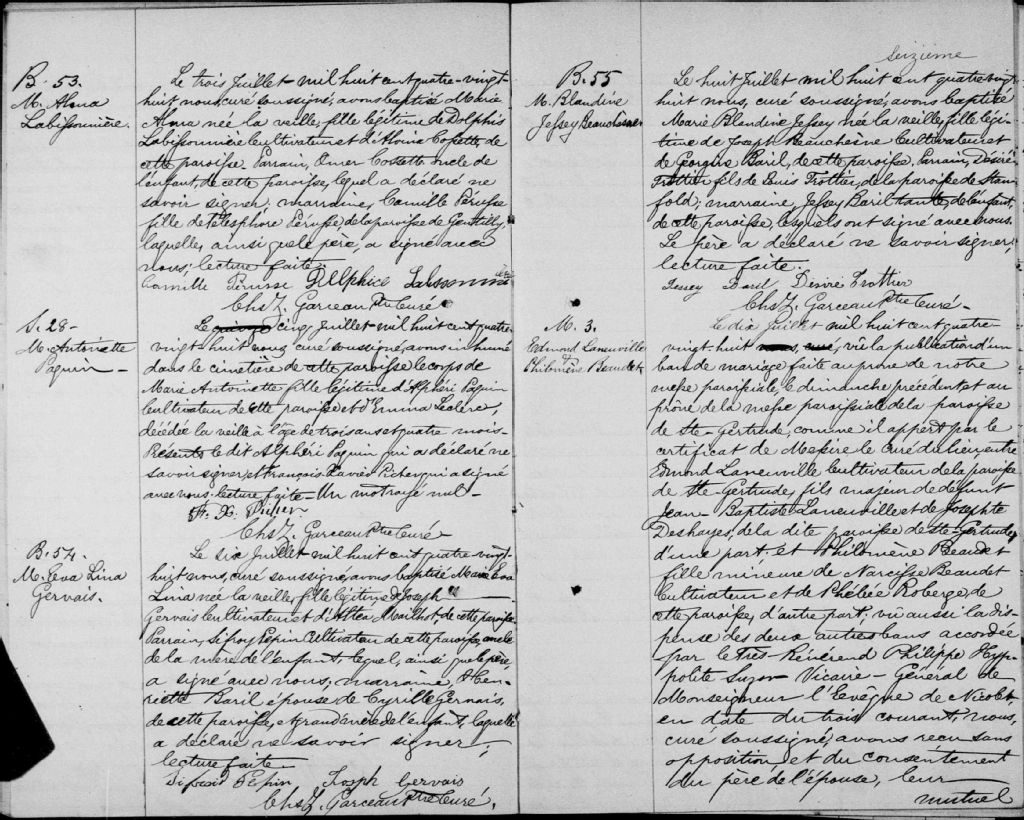 B. 53.
M. Alma
Labissonnière.
Le trois Juillet mil huit cent quatre-vingt-
huit nous, curé soussigné, avons baptisé Marie
Alma née la veille, fille légitime de Dolphis
Labissonnière cultivateur et d'Alvina Cossette, de
cette paroisse. Parrain, Omer Cossette oncle de
l'enfant, de cette paroisse, lequel a déclaré ne
savoir signer; marraine, Camille Pérusse
fille de Télesphore Pérusse, de la paroisse de Gentilly,
laquelle, ainsi que le père, a signé avec
nous; lecture faite.
Camille Perusse
Chs Z. Garceau Ptre Curé
S. 28-
M. Antoinette
Paquin-
Le cinq Juillet mil huit cent quatre-
vingt-huit nous curé soussigné, avons inhumé
dans le cimetière de cette paroisse le corps de
Marie Antoinette fille légitime d'Alphéri Paquin
cultivateur de cette paroisse et d'Emma Leclerc,
décédée la veille à l'âge de trois ans et quatre mois-
Présents le dit Alphéri Paquin qui a déclaré ne
savoir signer et François Xavier qui a signé
avec nous. lecture faite- Un mot rayé nul-
F. X.
Chs Z. Garceau Ptre Curé-
B. 54.
M. Eva Lina
Gervais.
Le six Juillet mil huit cent quatre-vingt-
huit nous, curé soussigné, avons baptisé Marie Eva
Lina née la veille, fille légitime de Joseph
Gervais cultivateur et d'Alféa Mailhot, de cette paroisse
Parrain, Sifroy Pepin cultivateur de cette paroisse, oncle
de la mère de l'enfant, lequel, ainsi que le père,
a signé avec nous; marraine, Hen-
riette Baril épouse de Cyrille Gervais,
de cette paroisse, et grand'mère de l'enfant, laquelle
a déclaré ne savoir signer;
lecture faite-
Pepin Joseph Gervais
Chs Z. Garceau Ptre Curé.
Seizième
B. 55
M. Blandine
Jessey Beauchesne
Le huit Juillet mil huit cent quatre-vingt-
huit nous, curé soussigné, avons baptisé
Marie Blandine Jessey née la veille, fille légi-
time de Joseph Beauchesne cultivateur et
de Georgine Baril, de cette paroisse, Parrain, Désiré
Trottier fils de Louis Trottier, de la paroisse de Stan-
fold; marraine, Jessey Baril tante de l'enfant,
de cette paroisse, lesquels ont signé avec nous.
Le père a déclaré ne savoir signer;
lecture faite.
Jessey Baril Désiré Trottier
Chs Z. Garceau Ptre Curé-
M. 3.
Edmond Laneuville
&
Philomène Beaudet
Le dix Juillet mil huit cent quatre-
vingt-huit nous, curé, vû la publication d'un
ban de mariage faite au prône de notre
messe paroissiale le dimanche précédent et au
prône de la messe paroissiale de la paroisse
de Ste-Gertrude, comme il appert par le
certificat de Messire le Curé du lieu, entre
Edmond Laneuville cultivateur de la paroisse
de Ste-Gertrude, fils majeur de défunt
Jean-Baptiste Laneuville et de Josephte
Deshaies, de la dite paroisse de Ste-Gertrude,
d'une part, et Philomène Beaudet
fille mineure de Narcisse Beaudet
cultivateur et de Phébée Roberge, de
cette paroisse, d'autre part; vû aussi la dis-
pense des deux autres bans accordée
par le Très-Révérend Philippe Hyp-
polite Suzor Vicaire-Général de
Monseigneur l'Evêque de Nicolet,
en date du trois courant, nous,
curé soussigné, avons reçu sans
opposition et du consentement
du père de l'épouse, leur
mutuel